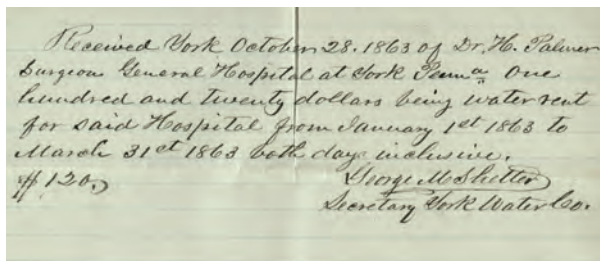 Received York October 28. 1863 of Dr. H. Palmer
Surgeon General Hospital at York Penna One
hundred and twenty dollars being water rent
for said Hospital from January 1st 1863 to
March 31st 1863 both days inclusive.
$120,
George M Shetter
Secretary York Water Co.